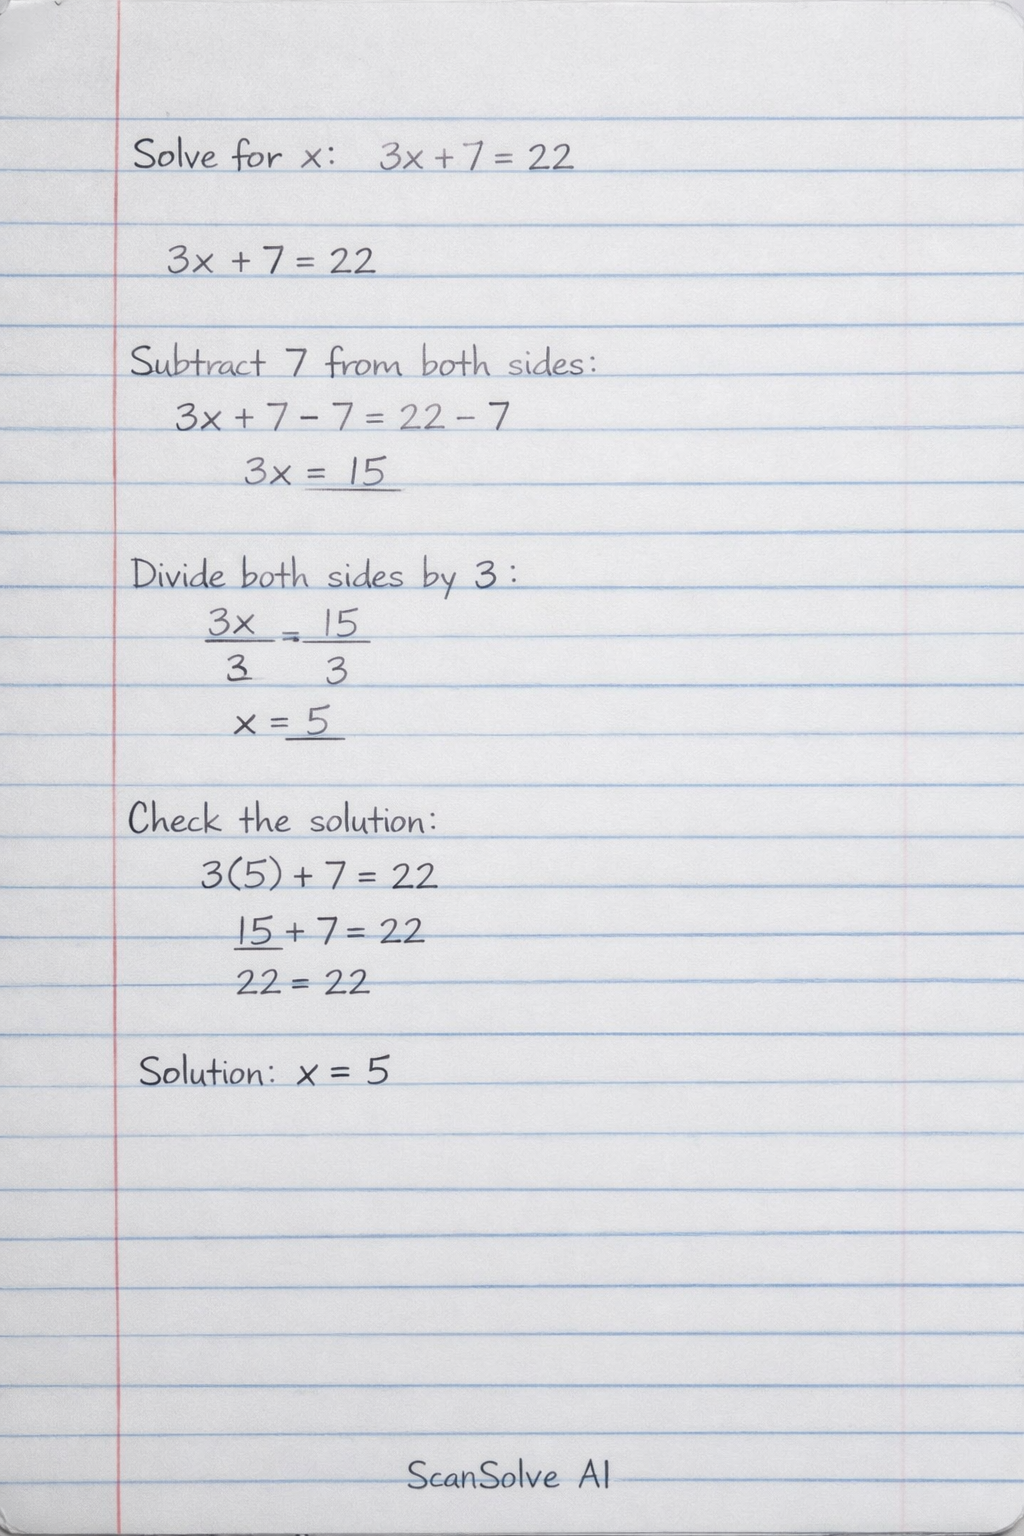 Solve for x: 3x + 7 = 22
3x + 7 = 22
Subtract 7 from both sides:
3x + 7 - 7 = 22 - 7
3x = 15
Divide both sides by 3:
3x/3 = 15/3
x = 5
Check the solution:
3(5) + 7 = 22
15 + 7 = 22
22 = 22
Solution: x = 5
ScanSolve AI